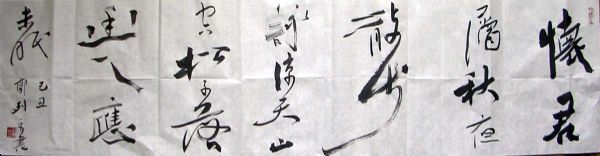 懷君
屬秋夜
散步
詠涼天山
空松子落
幽人應
未眠 己丑
郭列